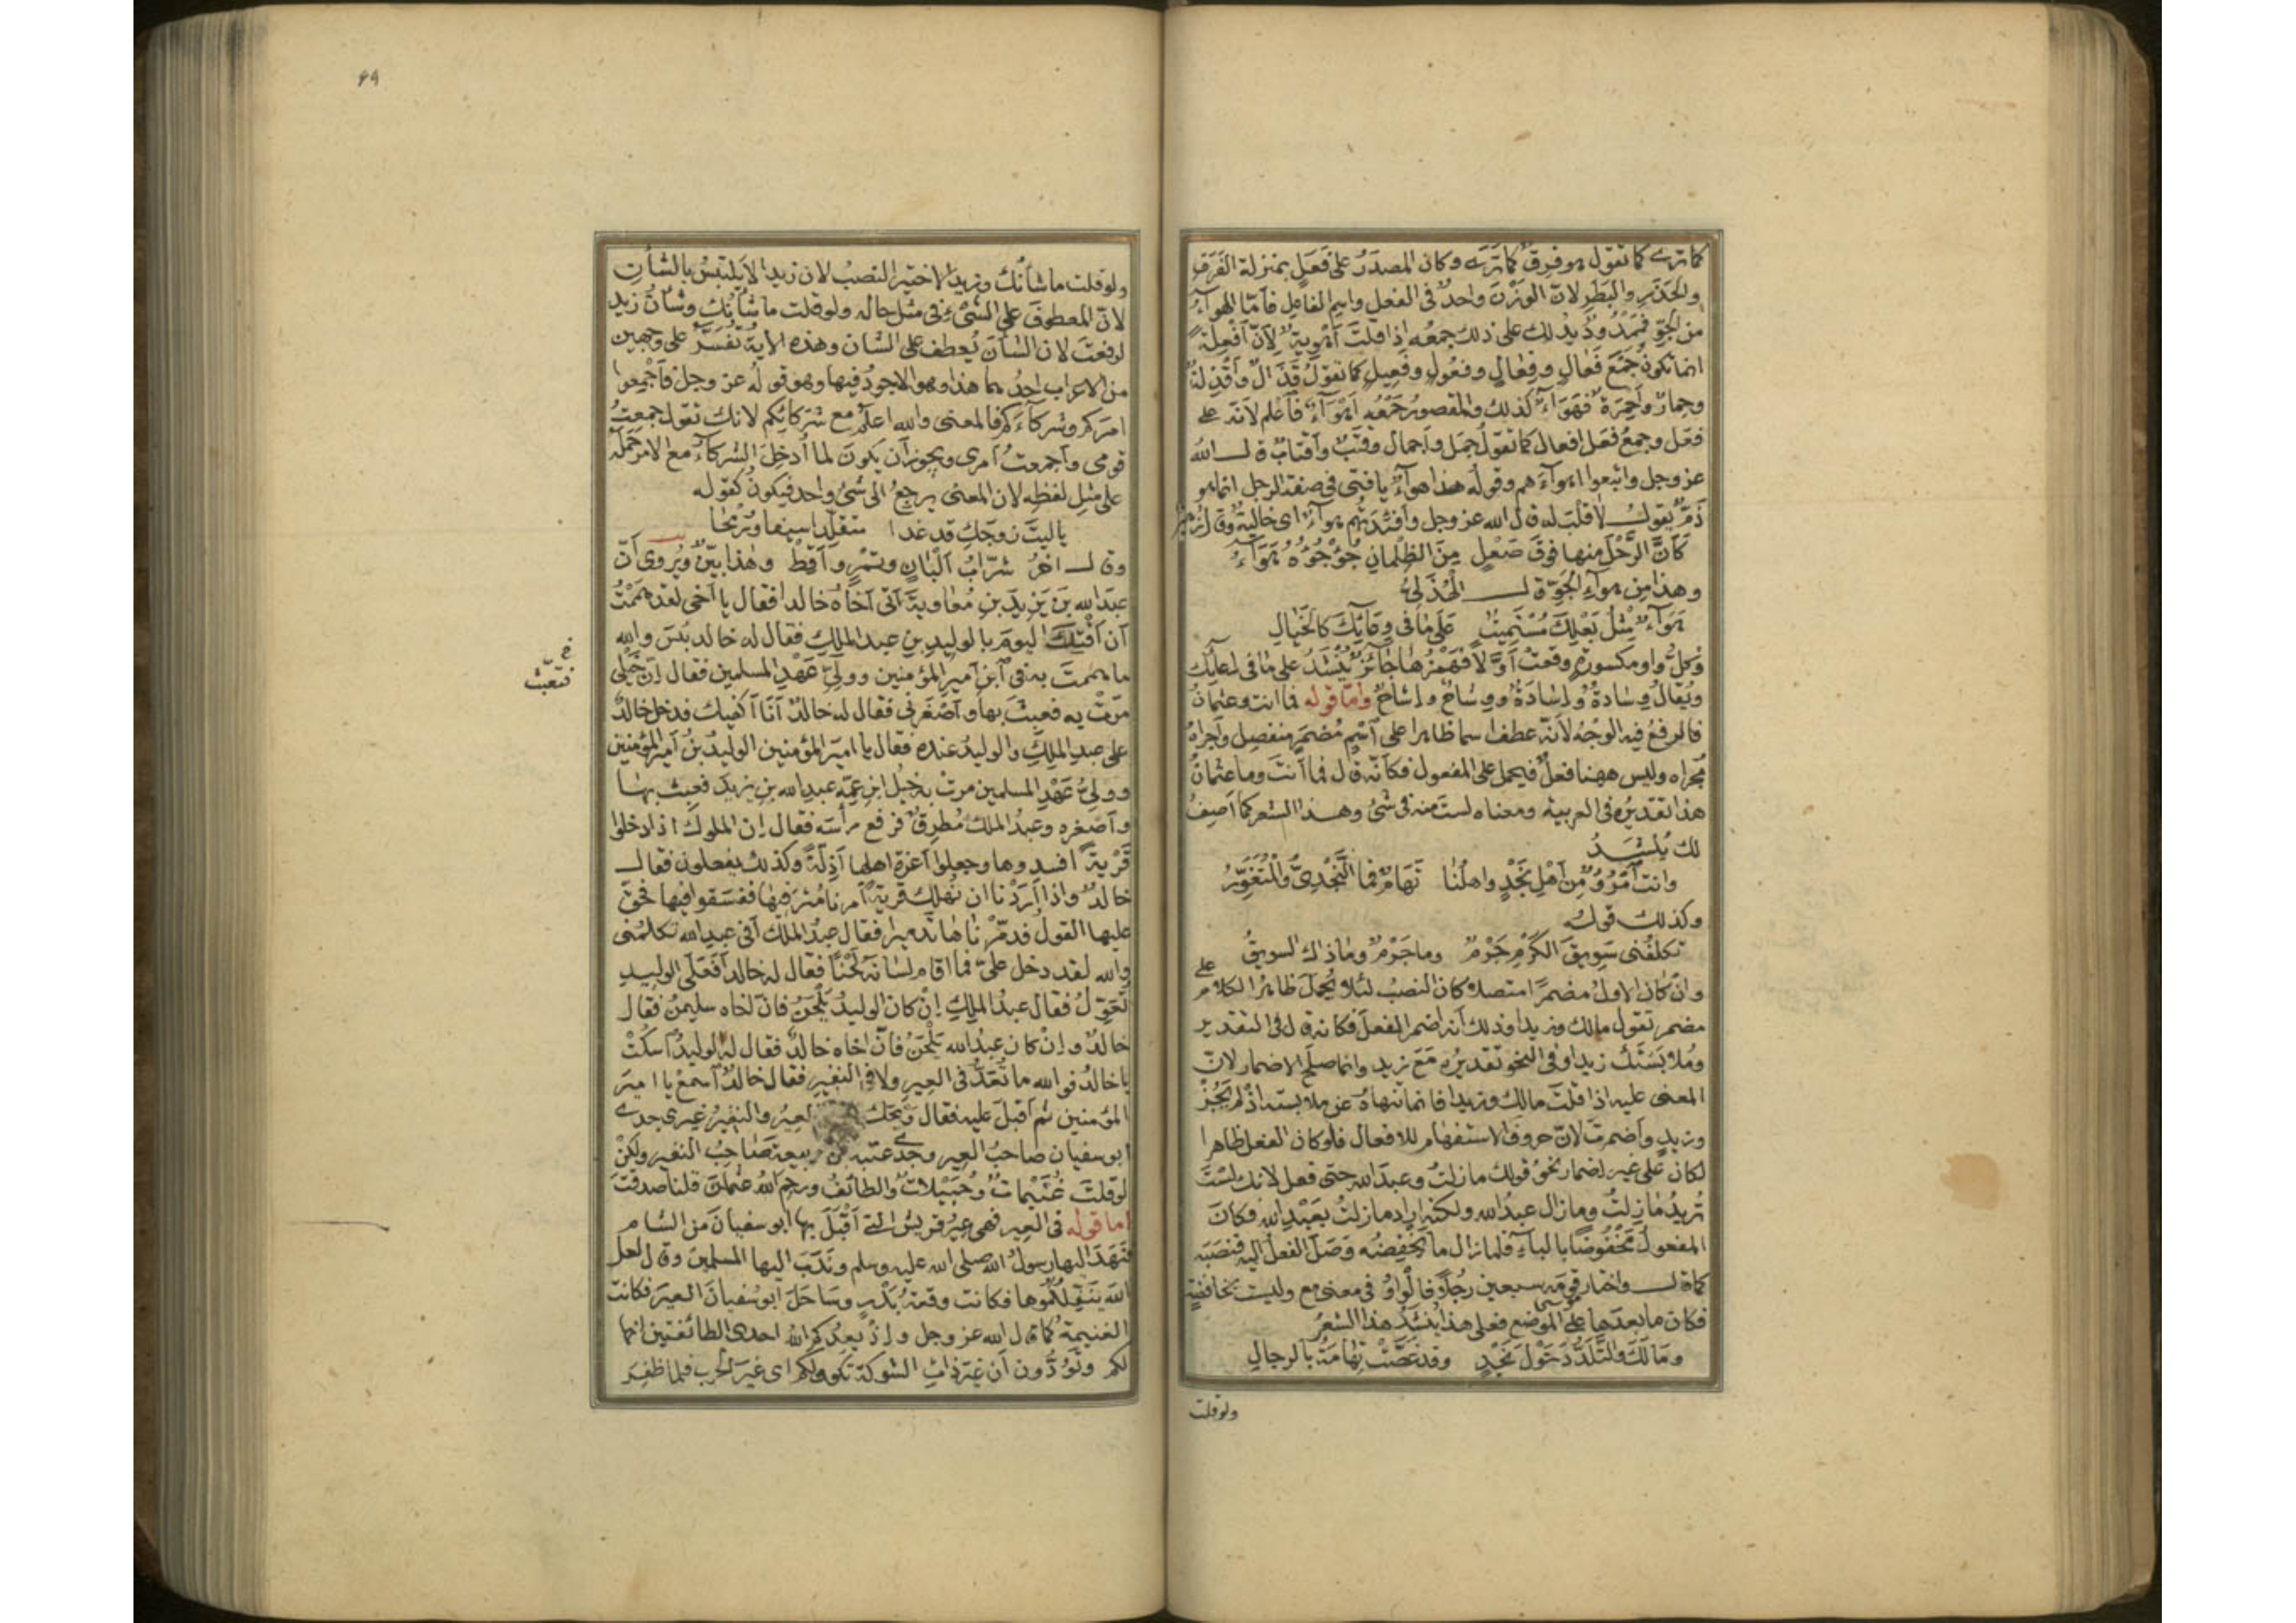 كما ترى كما تقول هو فرق كما ترى وكان المصدر على فعل بمنزلة الفرق
والحذر والبطر لان الوزن واحد فى الفعل واسم الفاعل فامّا الهوآء
من الجوّ فممدود يدلك على ذلك جمعه اذا قلت اهوية لانّ افعلة
انما تكون جمع فعال وفعال وفعول وفعيل كما تقول قذال واقذلة
وحمار واحمرة فهوآء كذلك والمقصور جمعه اهوآء فاعلم لانه على
فعل وجمع فعل افعال كما تقول جمل واجمال وقتب واقتاب قال الله
عز وجل واتبعوا اهوآءهم وقوله هذا هوآء يا فتى فى صفة الرجل انما هو
ذمّ يقول لا قلب له قال الله عز وجل وافئدتهم هوآء اى خالية وقال زهير
كأنّ الرحل منها فوق صعل من الظلمان جؤجؤه هوآء
وهذا من هوآء الجوّ قال الهذلى
هوآء مثل بعلك مستميت على ما فى وعآئك كالخيال
وكل واو مكسورة وقعت اوّلا فهمزها جائز ينشد على ما فى اعآئك
ويقال وسادة واسادة ووشاح واشاح وامّا قوله فما انت وعثمان
فالرفع فيه الوجه لانه عطف اسما ظاهرا على اسم مضمر منفصل واجراه
مجراه وليس ههنا فعل فيحمل على المفعول فكانّه قال فما انت وما عثمان
هذا تقديره فى العربية ومعناه لست منه فى شئ وهذا الشعر كما اصف
لك ينشد
وانت امرؤ من اهل نجد واهلنا تهام فما النجدىّ والمتغوّر
وكذلك قوله
تكلفنى سويق الكرم جرم وما جرم وما ذاك السويق
وان كان الاول مضمرا متصلا كان النصب لئلا يحمل ظاهر الكلام على
مضمر تقول مالك وزيدا وذلك انه اضمر الفعل فكانه قال فى التقدير
وملابستك زيدا وفى النحو تقديره مع زيد وانما صلح الاضمار لانّ
المعنى عليه اذا قلت مالك وزيدا فانما تنهاه عن ملابسته اذ لم يجز
وزيد واضمرت لانّ حروف الاستفهام للافعال فلو كان الفعل ظاهرا
لكان على غير اضمار نحو قولك ما زلت وعبد الله حتى فعل لانك لست
تريد ما زلت وما زال عبد الله ولكنه اراد ما زلت بعبد الله فكان
المفعول مخفوضا بالبآء فلما زال ما يخفضه وصل الفعل اليه فنصبه
كما قال واختار موسى قومه سبعين رجلا فالواو فى معنى مع وليست بخافضة
فكان ما بعدها على الموضع فعلى هذا ينشد هذا الشعر
وما لك والتلدّد حول نجد وقد غصّت تهامة بالرجال
ولو قلت
ولو قلت ما شأنك وزيدا لاختير النصب لان زيدا لا يلتبس بالشأن
لانّ المعطوف على الشئ فى مثل حاله ولو قلت ما شأنك وشأن زيد
لرفعت لان الشأن يعطف على الشان وهذه الاية تفسّر على وجهين
من الاعراب احدهما هذا وهو الاجود فيها وهو قوله عز وجل فاجمعوا
امركم وشركآءكم فالمعنى والله اعلم مع شركائكم لانك تقول جمعت
قومى واجمعت امرى ويجوز ان يكون لما ادخل الشركآء مع الامر حمله
على مثل لفظه لان المعنى يرجع الى شئ واحد فيكون كقوله
يا ليت زوجك قد غدا متقلّدا سيفا ورمحا
وقال اخر شرّاب البان وتمر واقط وهذا بيّن ويروى انّ
عبد الله بن يزيد بن معاوية اتى اخاه خالدا فقال يا اخى لقد هممت
ان افتك اليوم بالوليد بن عبد الملك فقال له خالد بئس والله
ما هممت به فى ابن امير المؤمنين وولىّ عهد المسلمين فقال انّ خيلى
مرّت به فعبث بها واصغرنى فقال له خالد انا اكفيك فدخل خالد
على عبد الملك والوليد عنده فقال يا امير المؤمنين الوليد بن امير المؤمنين
وولىّ عهد المسلمين مرت به خيل ابن عمّه عبد الله بن يزيد فعبث بها
واصغره وعبد الملك مطرق فرفع رأسه فقال ان الملوك اذا دخلوا
قرية افسدوها وجعلوا اعزة اهلها اذلة وكذلك يفعلون فقال
خالد واذا اردنا ان نهلك قرية امرنا مترفيها ففسقوا فيها فحق
عليها القول فدمّرناها تدميرا فقال عبد الملك أفى عبد الله تكلمنى
والله لقد دخل علىّ فما اقام لسانه لحنا فقال له خالد افعلى الوليد
تعوّل فقال عبد الملك ان كان الوليد يلحن فان اخاه سليمن فقال
خالد وان كان عبد الله يلحن فانّ اخاه خالد فقال له الوليد اسكت
يا خالد فوالله ما تعدّ فى العير ولا فى النفير فقال خالد اسمع يا امير
المؤمنين ثم اقبل عليه فقال ويحك العير والنفير غيرى جدى
ابو سفيان صاحب العير وجدى عتبة بن ربيعة صاحب النفير ولكن
لو قلت غنيمات وحبيلات والطائف ورحم الله عثمان قلنا صدقت
اما قوله فى العير فهى عير قريش التى اقبل بها ابو سفيان من الشام
فنهد اليها رسول الله صلى الله عليه وسلم وندب اليها المسلمين وقال لعل
الله ينفّلكموها فكانت وقعة بدر وساحل ابو سفيان العير فكانت
الغنيمة كما قال الله عز وجل واذ يعدكم الله احدى الطائفتين انها
لكم وتودّون ان غير ذات الشوكة تكون لكم اى غير الحرب فلما ظفر